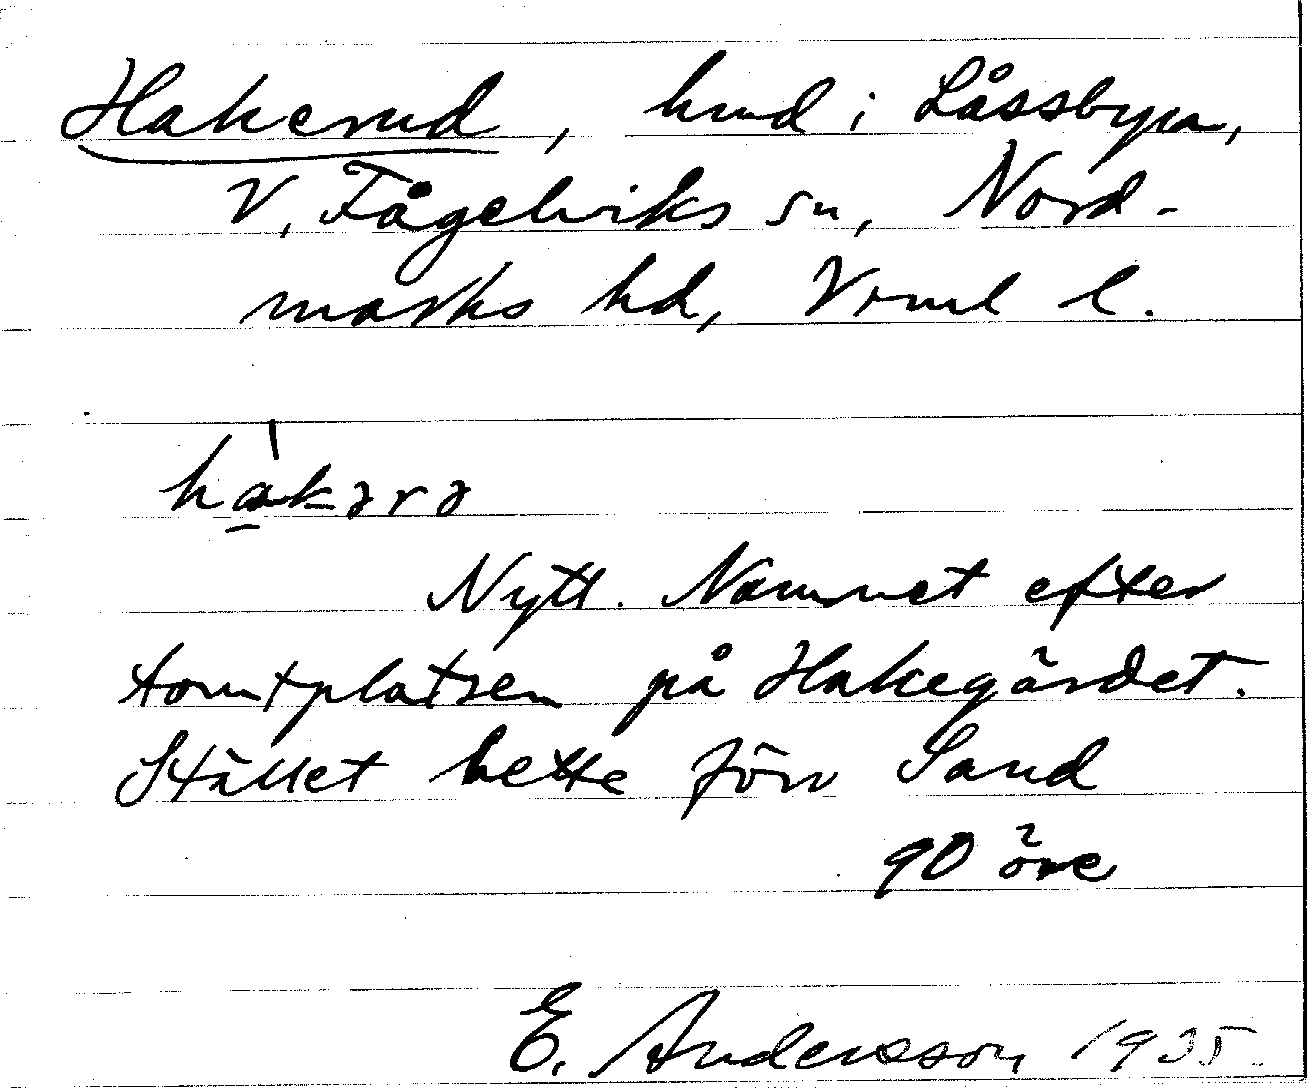 Hakerud, hmd i Låssbyn,
V. Fågelviks sn, Nord-
marks hd, Vrml l.
hàkərə
Nytt. Namnet efter
tomtplatsen på Hakegärdet.
Stället hette förr Sand
90 öre
E. Andersson 1935